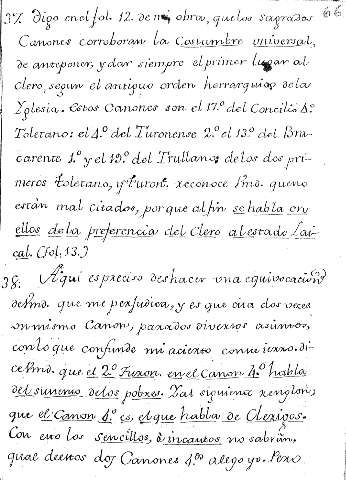 66
37. Digo en el fol. 12. de mi obra, que los sagrados
Canones corroboran la Costumbre universal,
de anteponer, y dar siempre el primer lugar al
Clero, segun el antiguo orden herrarquico de la
Yglesia. Estos Canones son el 17.º del Concilio 4.º
Toletano: el 4.º del Turonense 2.º el 13.º del Bra-
carente 1.º y el 19.º del Trullano: de los dos pri-
meros toletano, y Turon. reconoce Pind. que no
están mal citados, porque al fin se habla en
ellos de la preferencia del Clero al estado Lai-
cal. (fol. 13.)
38. Aqui es preciso deshacer una equivocacion
de Pind. que me perjudica, y es que cita dos veces
un mismo Canon, para dos diversos asuntos,
con lo que confunde mi acierto con su ierro. di-
ce Pind. que el 2.º Turon. en el Canon 4.º habla
del sustento de los pobres. Y al siguiente renglon,
que el Canon 4.º es, el que habla de Clerigos.
Con esto los sencillos, è incautos no sabràn,
qual de estos dos Canones 4.os alego yo. Pero